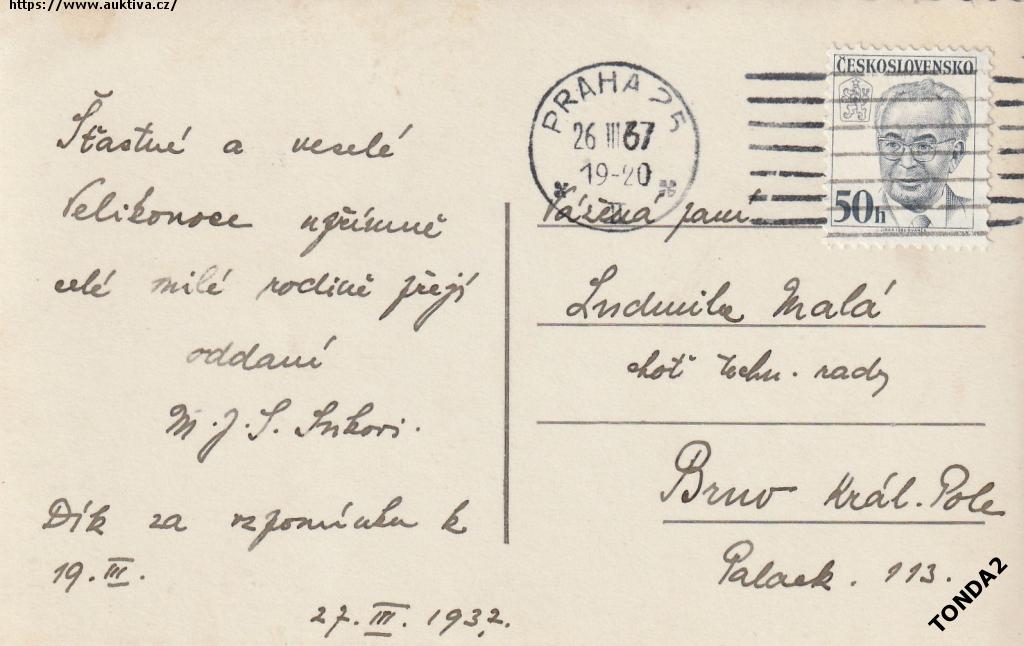 https://www.auktiva.cz/
Šťastné a veselé
Velikonoce upřímně
celé milé rodině přejí
oddaní
M. J. S. Sukovi.
Dík za vzpomínku k
19. III.
27. III. 1937.
PRAHA 25
26 III 67
19-20
ČESKOSLOVENSKO
50h
Vážená paní
Ludmila Malá
choť techn. rady
Brno Král. Pole
Palack. 113.
TONDA2